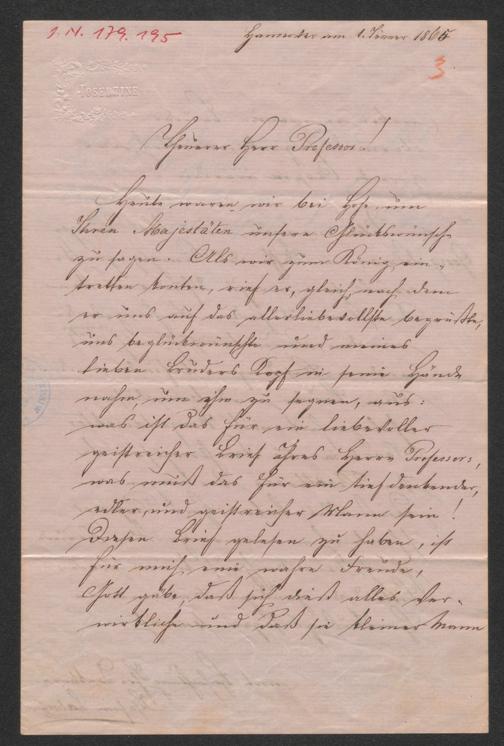 I. N. 179.195
Hannover am 1. Jänner 1865
3
JOSEPHINE
Theuerer Herr Professor!
Heute waren wir bei Hofe um
Ihren Majestäten unsere Glückwünsche
zu sagen. Als wir zum König ein-
tretten konten, rief er, gleich nach dem
er uns auf das allerliebevollste begrüßte,
uns beglückwünschte und meines
lieben Bruders Kopf in seine Hände
nahm, um ihn zu segnen, aus:
was ist das für ein liebevoller
geistreicher Brief Ihres Herrn Professors,
was muß das für ein tief denkender,
edler, und geistreicher Mann sein!
Diesen Brief gelesen zu haben, ist
für mich eine wahre Freude,
Gott gebe, daß sich dieß alles ver-
wirkliche und daß sie kleiner Mann